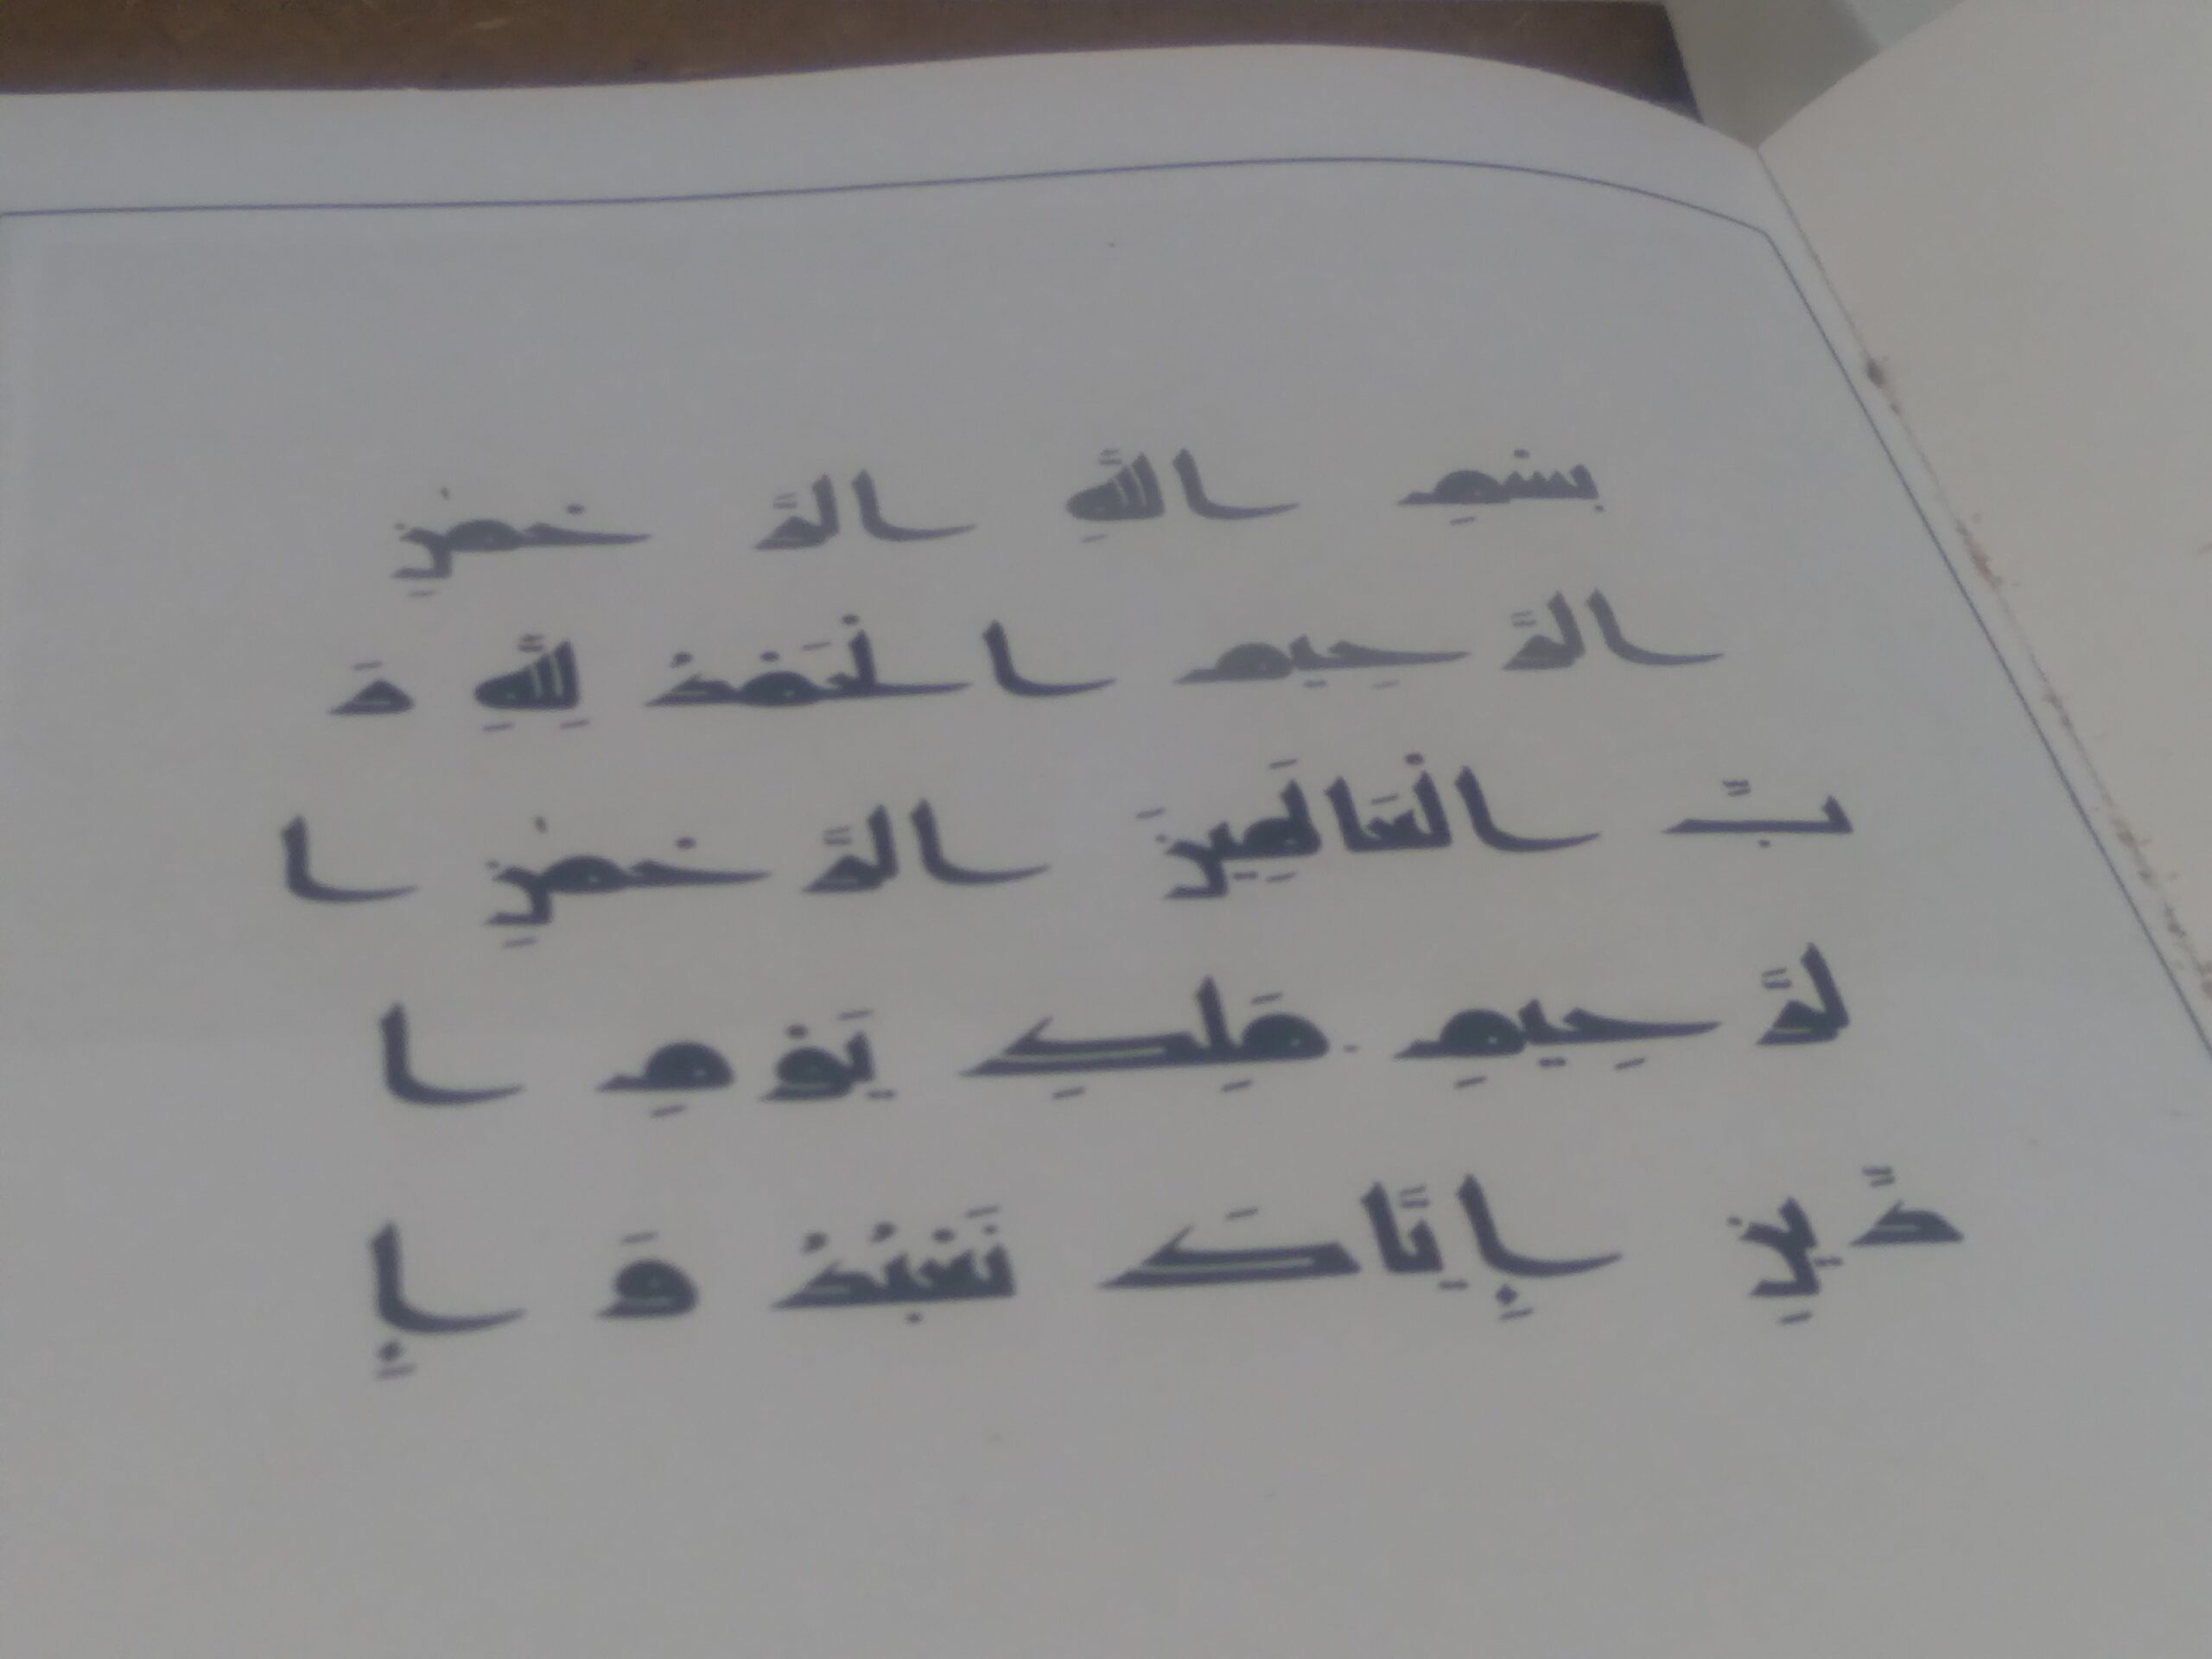 بِسْمِ اللَّهِ الرَّ حْمٰنِ
الرَّ حِيمِ الْحَمْدُ لِلَّهِ رَ
بِّ الْعَالَمِينَ الرَّ حْمٰنِ ا
لرَّ حِيمِ مَلِكِ يَوْمِ ا
لدِّينِ إِيَّاكَ نَعْبُدُ وَ إِ